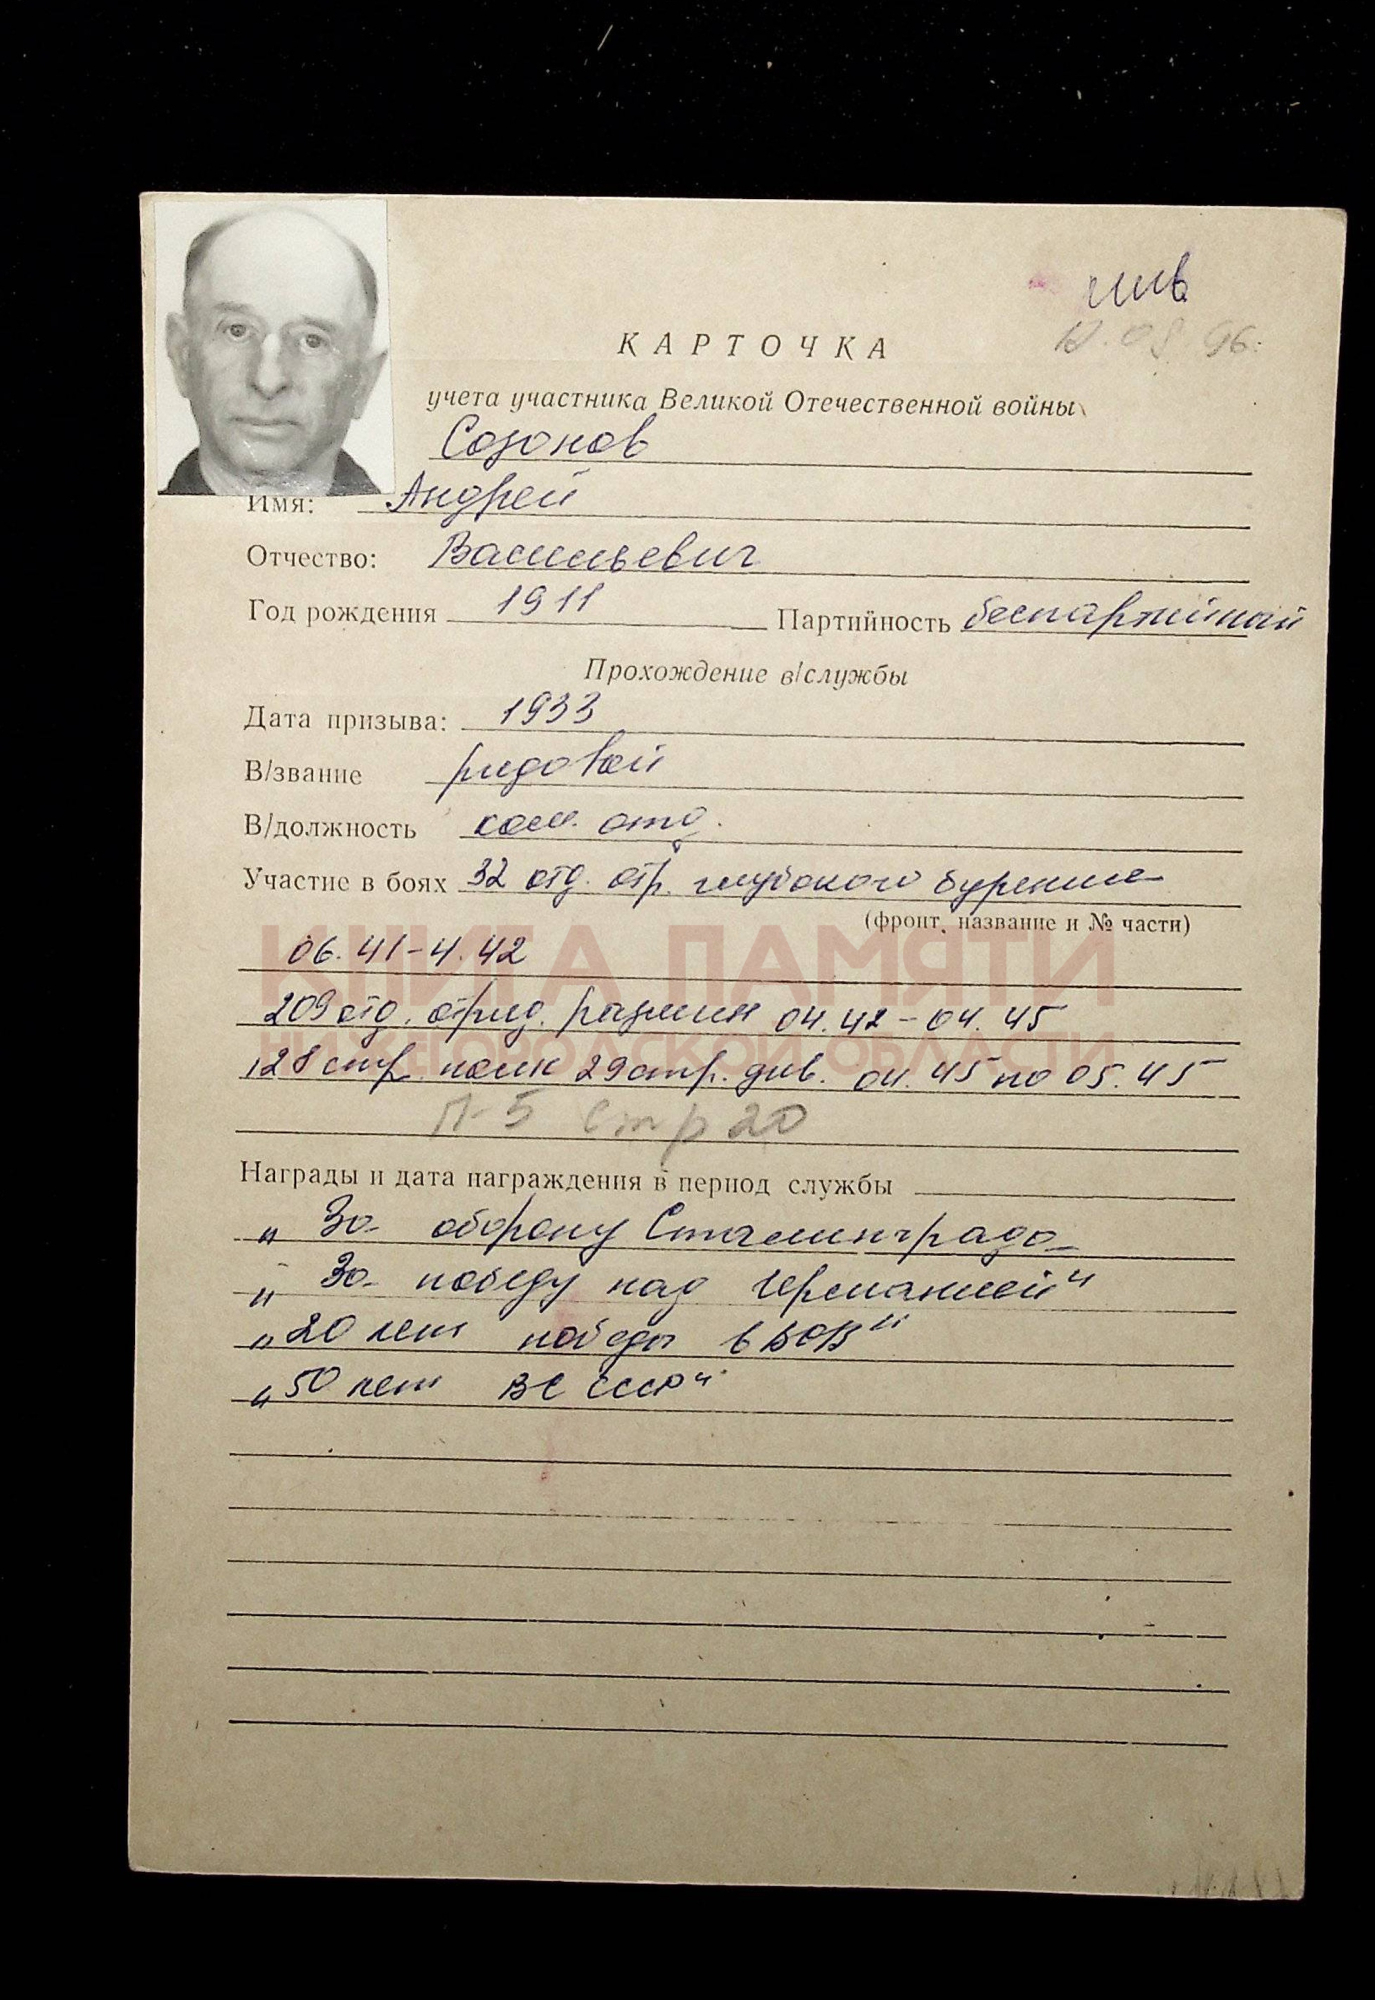 КАРТОЧКА
учета участника Великой Отечественной войны
Созонов
Имя: Андрей
Отчество: Васильевич
Год рождения 1911 Партийность беспартийный
Прохождение в/службы
Дата призыва: 1933
В/звание рядовой
В/должность ком. отд.
Участие в боях 32 отд. отр. глубокого бурения
(фронт, название и № части)
06.41-4.42
209 отд. отряд. 04.42-04.45
128 стр. полк 29 стр. див. 04.45 по 05.45
П-5 стр 20
Награды и дата награждения в период службы
„За оборону Сталинграда
„За победу над Германией"
„20 лет победы в ВОВ"
„50 лет ВС СССР"
КНИГА ПАМЯТИ
НИЖЕГОРОДСКОЙ ОБЛАСТИ